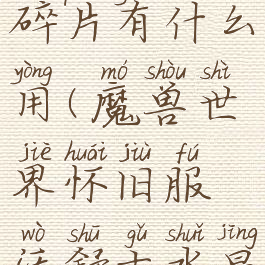 碎片有什么
yòng mó shòu shì
用(魔兽世
jiè huái jiù fú
界怀旧服
wò shū gǔ shuǐ jīng
沃舒古水晶